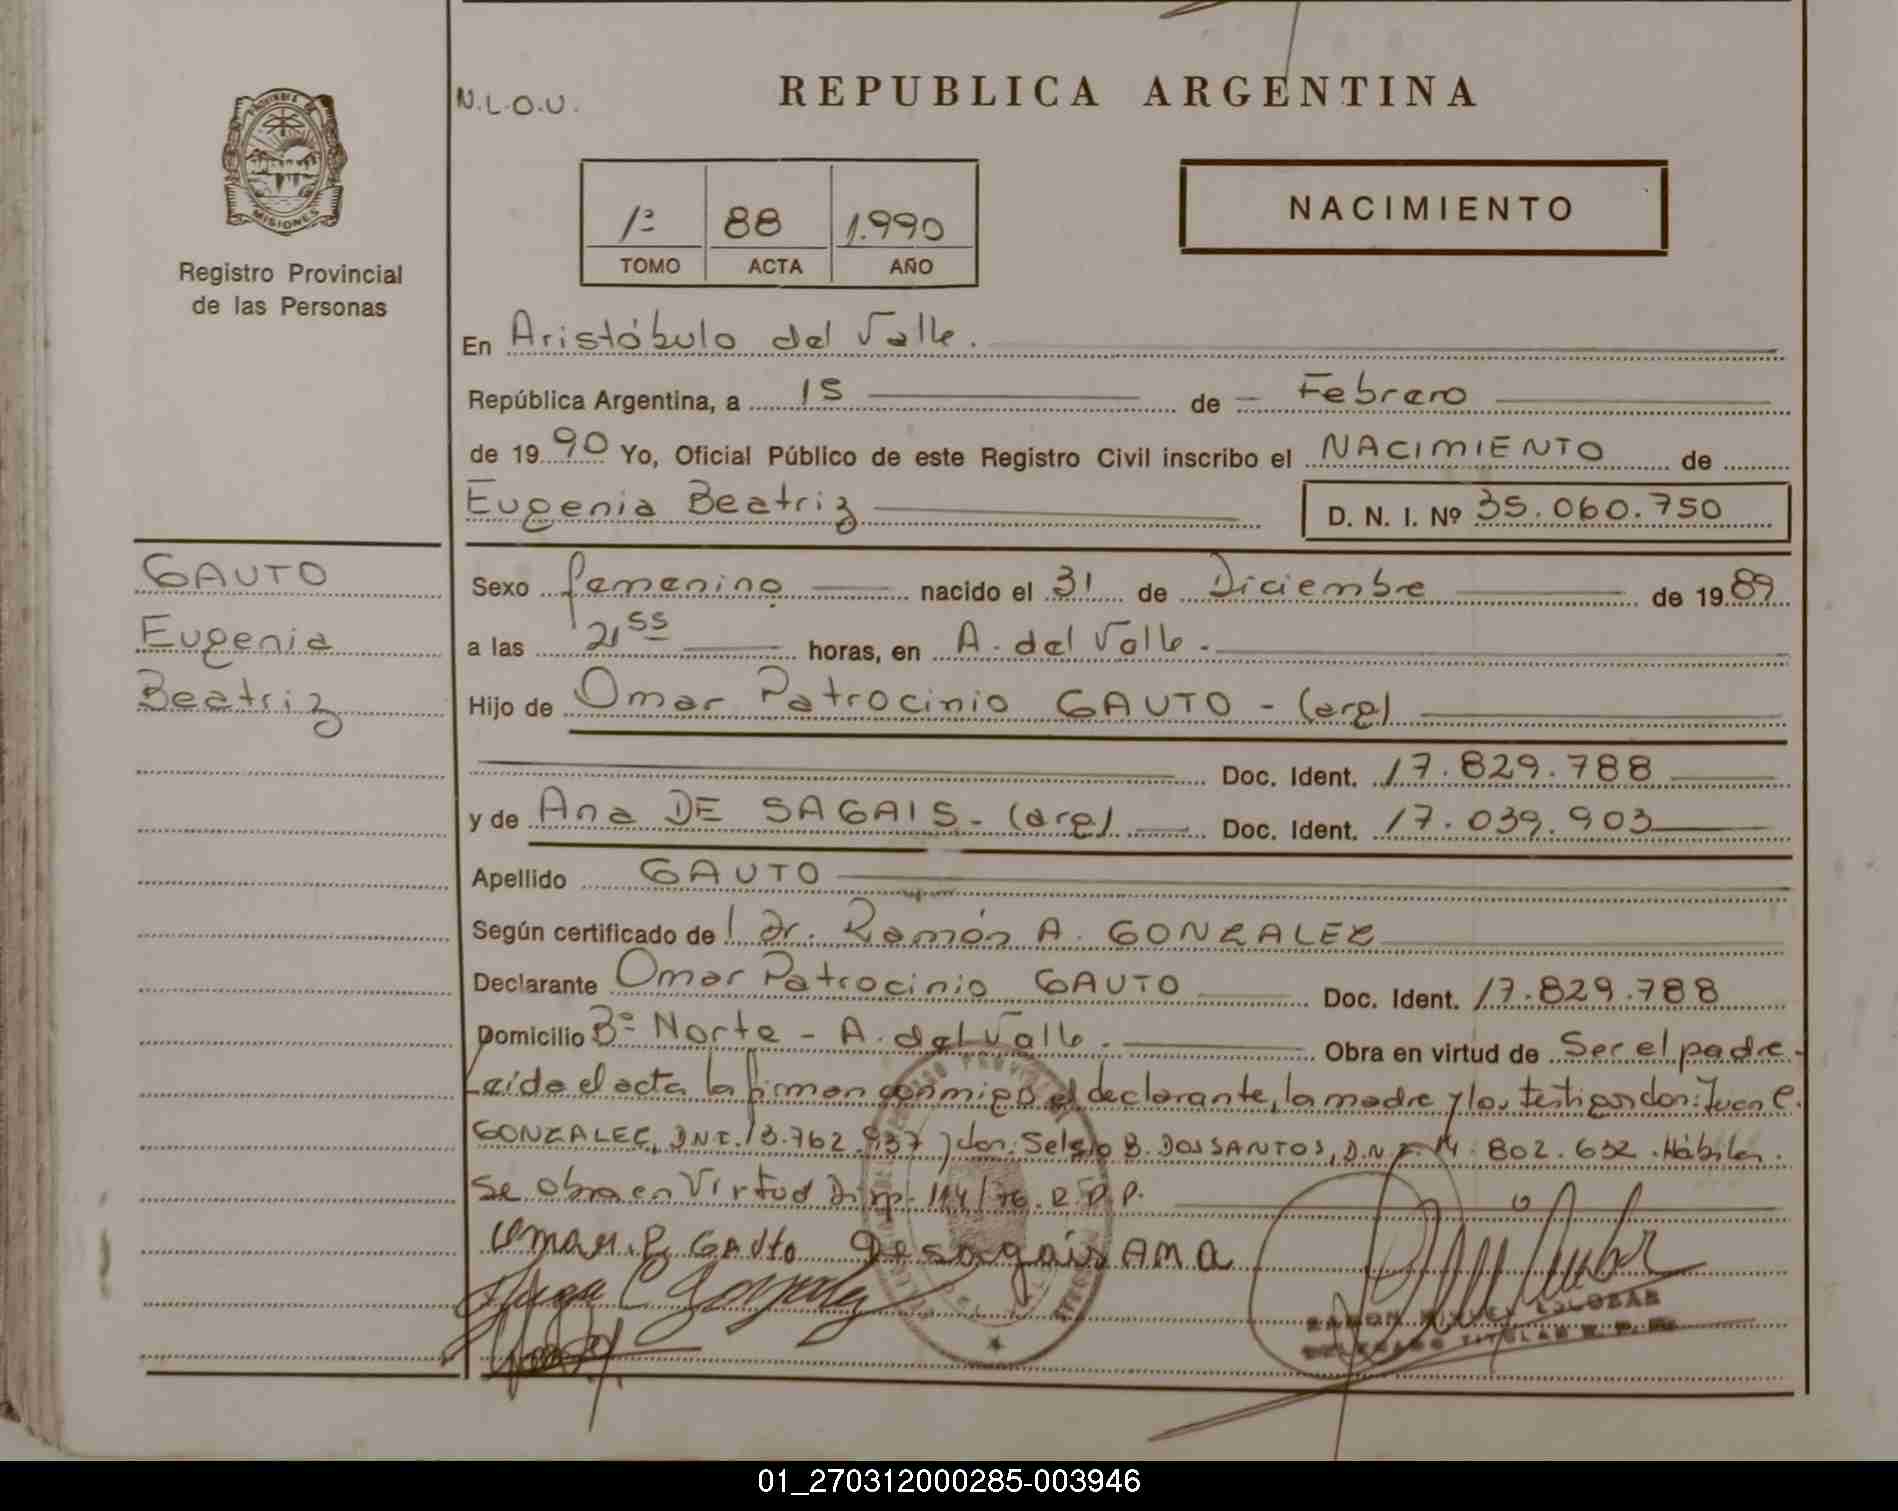 N.L.O.U.
REPUBLICA ARGENTINA
PROVINCIA DE
MISIONES
Registro Provincial
de las Personas
1º 88 1.990
TOMO ACTA AÑO
NACIMIENTO
En Aristóbulo del Valle.
República Argentina, a 15 de Febrero
de 1990 Yo, Oficial Público de este Registro Civil inscribo el NACIMIENTO de
Eugenia Beatriz D. N. I. Nº 35.060.750
GAUTO
Eugenia
Beatriz
Sexo femenino nacido el 31 de Diciembre de 1989
a las 21 55 horas, en A. del Valle.
Hijo de Omar Patrocinio GAUTO - (arg)
Doc. Ident. 17.829.788
y de Ana DE SAGAIS - (arg) Doc. Ident. 17.039.903
Apellido GAUTO
Según certificado del Dr. Ramón A. GONZALEZ
Declarante Omar Patrocinio GAUTO Doc. Ident. 17.829.788
Domicilio Bº Norte - A. del Valle. Obra en virtud de Ser el padre.
Leída el acta la firman conmigo el declarante, la madre y los testigos don: Juan C.
GONZALEZ, DNI. 13.762.937 y don: Selgio B. DOS SANTOS, D.N.I. 14.802.632. Hábiles.
Se obra en Virtud Disp. 114/76. R.P.P.
Omar. P. Gauto Desagais Ana
C Gonzalez
RAMON MIGUEL ESCOBAR
DELEGADO TITULAR R. P. P.
01_270312000285-003946